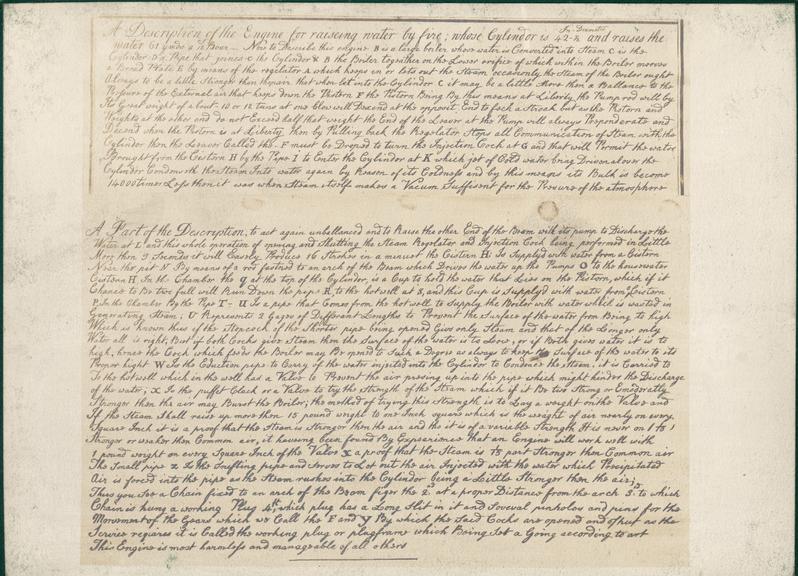 A Description of the Engine for raiseing water by fire; whose Cylindor is 42-½ In Diametr and raises the
water 61 yards a 12 Boar — Now to Describe this engine B is a large boiler whose water is Converted into Steam C is the
Cylinder D a Pipe that joines c the Cylinder & B the boiler together on the Lower orifice of which within the Boiler mooves
a Broad Plate by means of the regelator A which keeps on or lets out the Steam occasionly the Steam of the Boiler ought
Always to be a little stronger then the air that when let into the Cylindor C it may be a little More then a Ballance to the
Presure of the External air that keeps down the Piston F the Piston Being By this means at Liberty the Pump rod will by
its Great weight of about 10 or 12 tuns at one blow will Descend at the opposit End to fech a Stroak but as the Piston and
Weights at the other end do not Exceed half that weight the End of the Leaver at the Pump will always Preponderate and
Decend when the Piston is at Liberty, then by Pulling back the Regolator Stops all Communication of Steam with the
Cylinder then the Leaver Called the F must be Droped to turn the Injection Cock at G and that will Permit the water
Brought from the Cistern H by the Pipe I to Enter the Cylinder at K which jet of Cold water being Driven all over the
Cylinder Condenses the Steam Into water again by Reason of its Coldness and by this means its Bulk is become
14000 times Less then it was when Steam itself makes a Vacum Suffisent for the Presure of the atmosphere
A Part of the Description, to act again unballanced and to Raise the other End of the Beam with its pump to Discharge the
Water at L and this whole operation of opening and Shutting the Steam Regelator and Injection Cock being performed in Little
More then 3 Seconds it will Easely Produce 16 Strokes in a minuet the Cistern H: Is Supply'd with water from a Cistern
Near the pit N By means of a rod fastened to an arch of the Beam which Drives the water up the Pumps O to the house water
Cistern H. In the Chamber the Q at the top of the Cylindor, is a Cup to hold the water that Lies on the Piston, which if it
Chance to Be too full will Run Down the pipe R to the hotwell at S, and this Cup is Supply'd with water from Cistern
P. In the Chamber By the Pipe T — U Is a pipe that Comes from the hot well to Supply the Boiler with water which is wasted in
Generating Steam; U Represents 2 Gages of Different Lengths to Prevent the Surface of the water from Being to high
Which is known thus if the Stopcock of the Shorter pipe being opened Give only Steam and that of the Longer only
Water all is right, But if both Cocks give Steam then the Surface of the water is to Low, or if Both gives water it is to
high, hence the Cock which feeds the Boiler may Be opened to Such a Degree as always to keep the Surface of the water to its
Proper hight W Is the Eduction pipe to Carry of the water injected into the Cylinder to Condence the Steam, it is carried to
To the hotwell which in the well had a Valve to Prevent the air pressing up into the pipe which might hinder the Discharge
of the water, X Is the puppet Clack or a Valve to try the Strength of the Steam which if it Be too Strong or Emoderatly
Stronger then the air may Burst the Boiler, the method of trying this Strength is to Lay a weight on the Valve and
If the Steam Shall raise up more than 15 pound weight to one Inch square which is the weight of air nearly on every
Square Inch it is a proof that the Steam is Stronger then the air and the it is of a variable Strength It is never on 1 to 1
Stronger or weaker then Common air, it haveing been found By Experience that an Engine will work well with
1 pound weight on every Square Inch of the Valve X a proof that the Steam is 1/15 part Stronger then Common air
The Small pipe Z Is the Snifting pipe and Serves to Let out the air Injected with the water which Precipitated
Air is forced into the pipe as the Steam rushes into the Cylinder being a Little Stronger then the air;
Thus you See a Chain fixed to an arch of the Beam figr the 2d at a proper Distance from the arch 3d to which
Chain is hung a working Plug 4th which plug has a Long Slit in it and Several pinholes and pins for the
Movement of the Gears which we Call the F and Y By which the Said Cocks are opened and shut as the
Service requires it is Called the working plug or plugframe which Being Set a Going according to art
This Engine is most harmless and manageable of all others